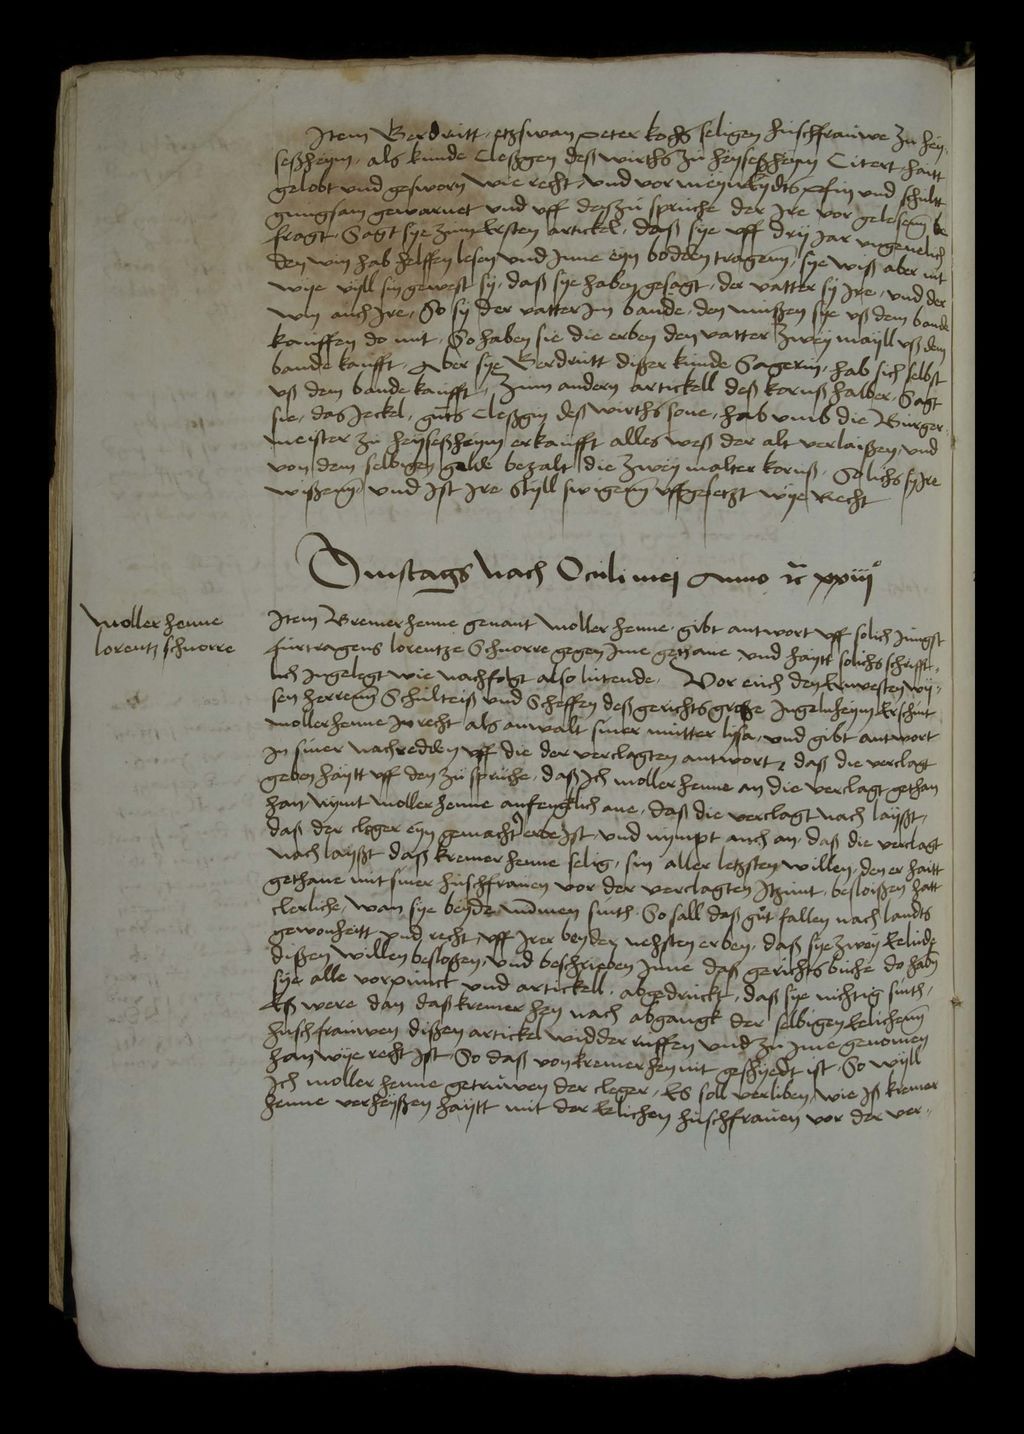 Item Gerdrutt etzswan peter kochs seligen hußfrauwe zu hey„
seßheym, als kunde Cleßgen deß wirths zu heyseßheym Citert haitt
gelobt und gesworn wie recht, und vor meyneydts pfin und schult
gnugsam gewarnet und uff das zu spruche der Ire vor gelesenn be
fragt, Sagt sye zum ersten artickel, daß sye uff dry Jar ungeuerlich
den wyn hab helffen lesen und Inne eyn bodden tragenn, sye wiß aber nit
wye vyll sin gewest sy, daß sye haben gesagt, der vatter sy Ire, und der
wyn auch Ire, So sy der vatter Im bande, den mußen sye uß dem bande
kauffen do mit, So haben sie die erben den vatter zwey mayll uß dem
bande kaufft, Aber sye Gerdrutt dißer kunde Sagerin, hab sich selbst
uß dem bande kaufft, Zum andern artickell deß kornß halber, Sagt
sie, das Jeckel, guts Cleßgin deß wirths sone, hab umb die Burger„
meister zu heyseßheym erkaufft alles weß der alt verlaißen, und
von dem selbigen gelde bezalt die zwey malter kornß, Solichs sy Ire
wißenn, und Ist Ire styll swigenn uffgesetzt wye Recht
Dinstags nach Oculi mej Anno rc xxiijo
Moller henne
lorentz schnorre
Item Kremer henne genant Moller henne, gibt antwort uff solich Jungst
furtragens lorentze Schnorre gegen Ime gethane und haytt solichs schrifft„
lich Ingelegt wie nachfolgt also lutende, Vor euch den Ernvesten wy„
sen herrenn Schulteiß und Scheffen deß gerichts große Ingelnheym Erschint
moller henne In recht als anwalt siner mutter lisa, und gibt antwort
In siner nachredden uff die der verclagten antwort, daß die verclagt
geben haytt uff den zu spruche, daß Ich moller henne an die verclagt gethan
han nymt moller henne anfenglich ane, daß die verclagt nach laißt,
daß der cleger eyn gemacht erbe Ist, und nympt auch an, daß die verclagt
nach laißt daß kremer henne selig, sin aller letzsten willen, den er haitt
gethane mit siner hußfrauen vor der verclagten Itzunt, besloißen hatt
clerliche, wan sye beyde nummen sinth, So sall daß gut fallen nach landts
gewonheitt und recht, uff Irer beyder nehsten erben, daß sye zwey Eelude
dißen willen besloßen, und beschrieben Inne daß gerichts buche, do haben
sye alle vorpunct und artickell, abgedruckt, daß sye nichtig sinth,
Eß were dan daß kremer hen nach abgangk der selbigen Eelichenn
hußfrauwen dißen artickel widder ruffen und zu Ime genomen
han wye recht Ist, So daß von kremer hen nit geschyedt ist, So wyll
Ich moller henne getruwen der cleger, Es soll verliben, wie Iß kremer
henne verheyßen haytt mit der Eelichen hußfrauen vor der ver„